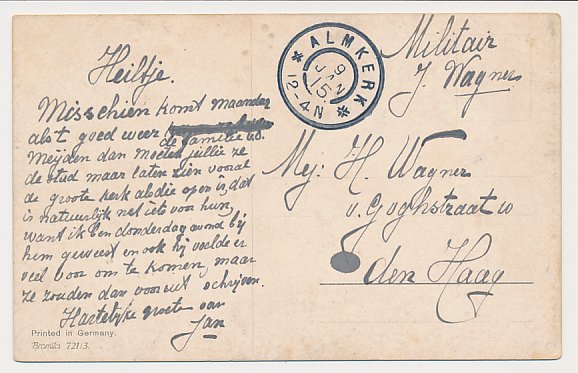 Heiltje.
Misschien komt maandag
als t goed weer
de familie v.d.
Meijden dan moeten jeillie ze
de stad maar laten zien vooral
de groote kerk als die open is, dat
is natuurlijk net iets voor hun,
want ik ben donderdag avond bij
hem geweest en ook hij voelde er
veel voor om te komen, maar
ze zouden dan vooruit schrijven.
Hartelijke groete van
Jan
Printed in Germany.
"Bromilla" 721/3.
ALMKERK
9 JAN 15
12-4N
Militair
J. Wagner
Mej: H. Wagner
v. Goghstraat 10
den Haag